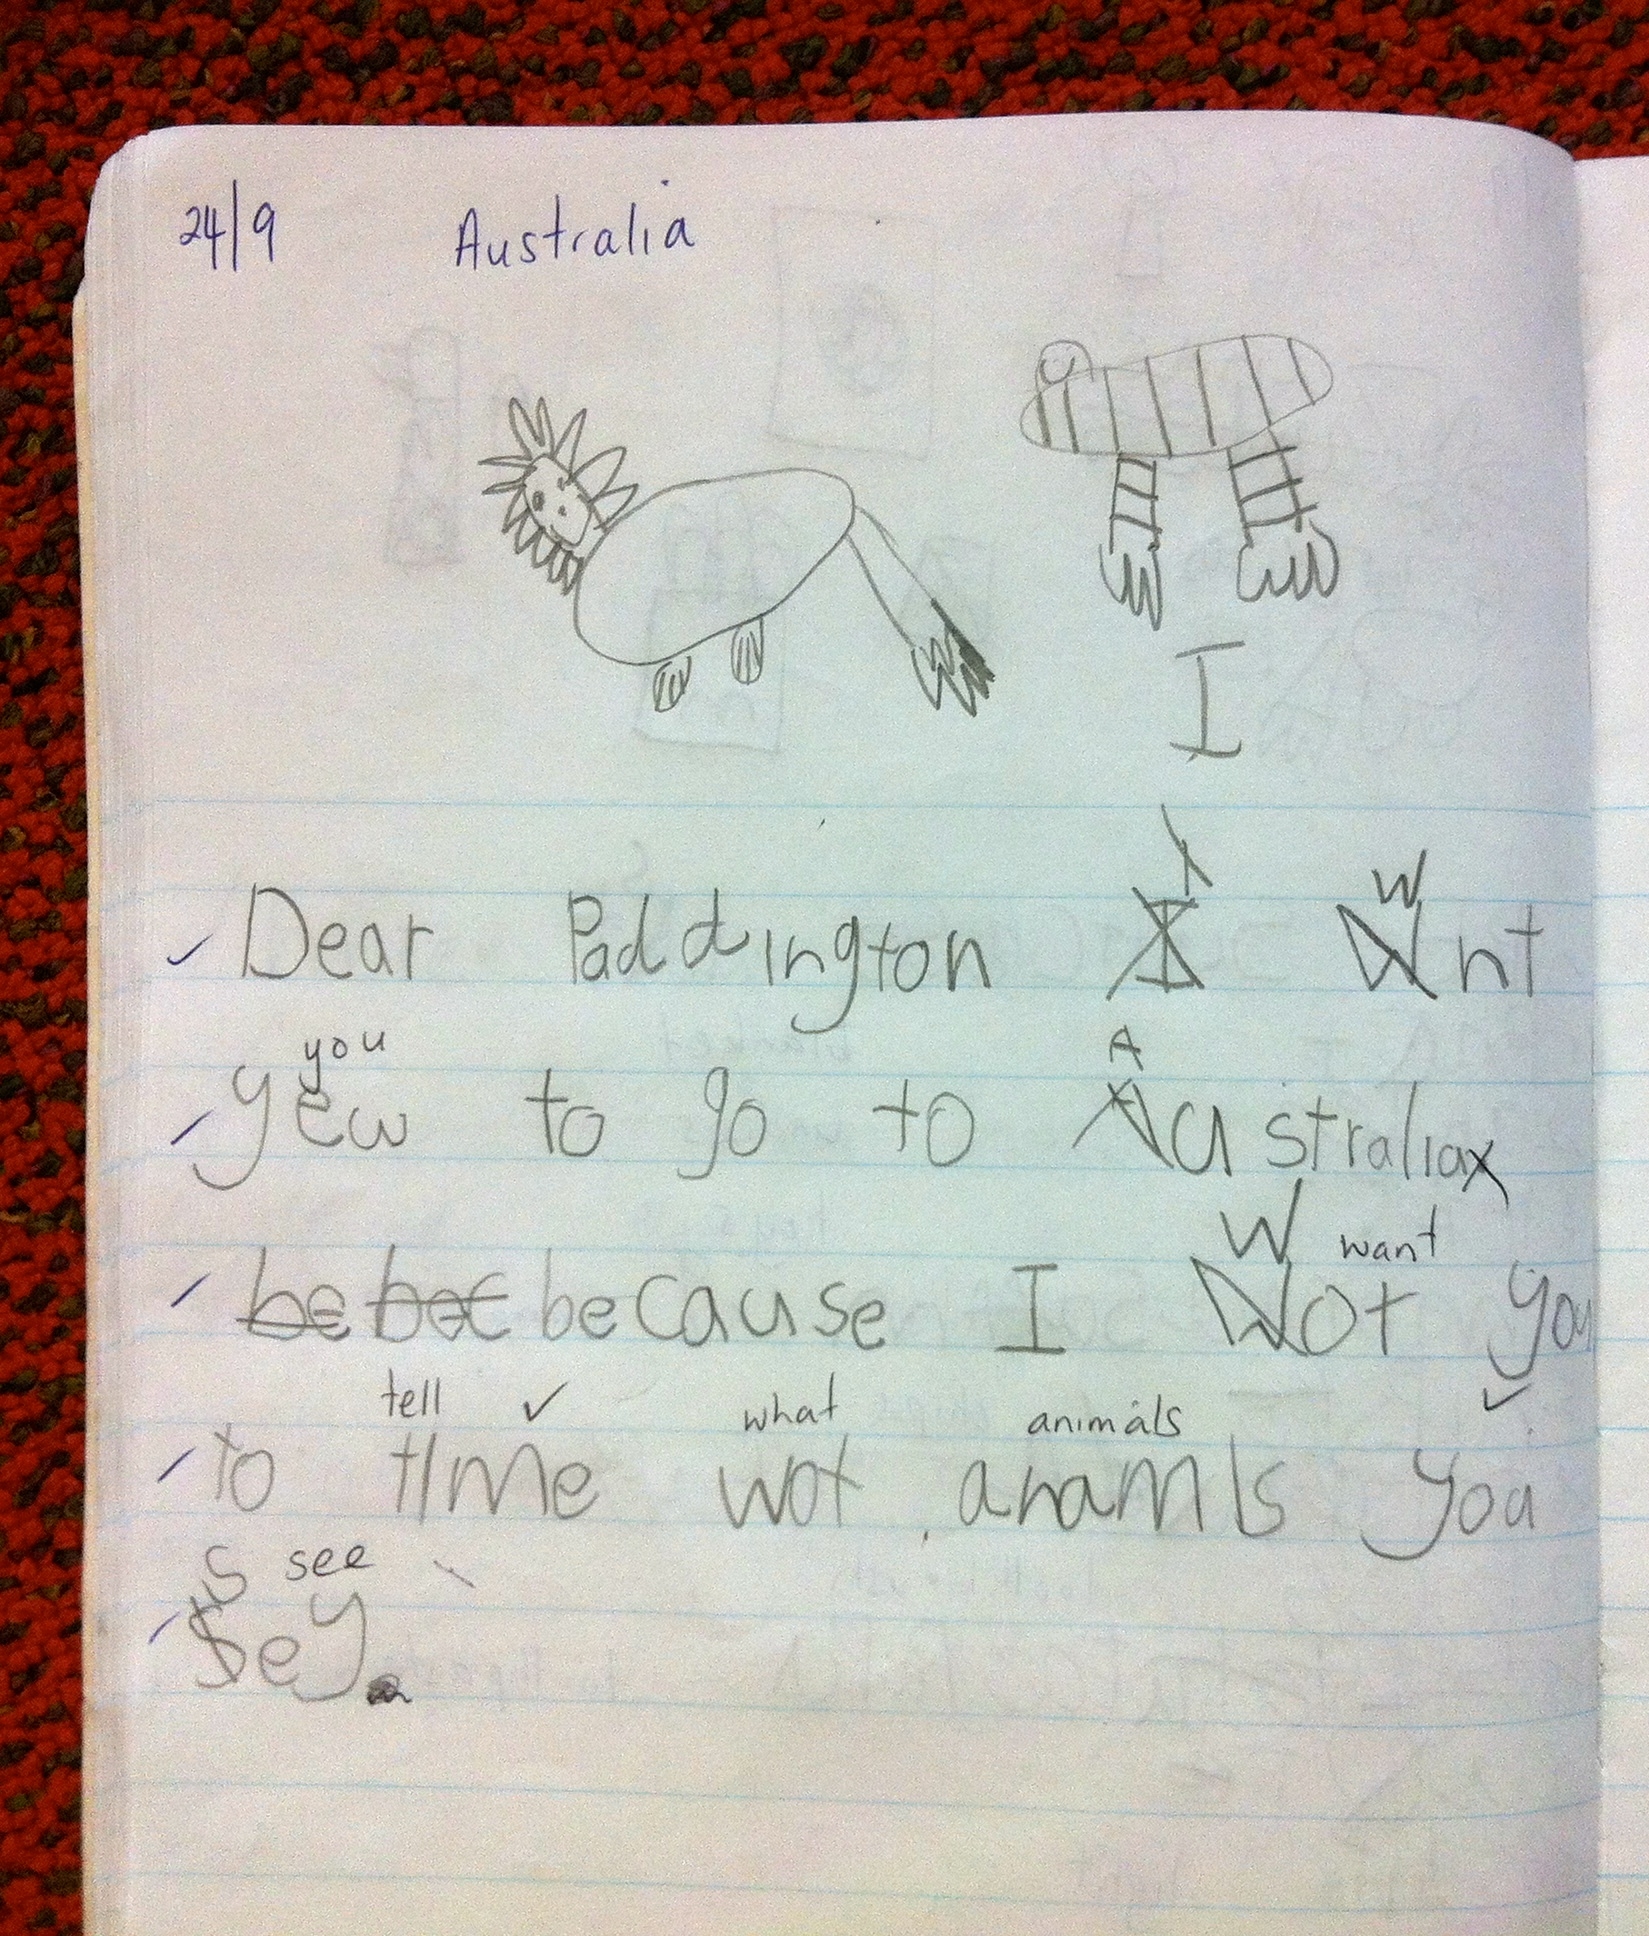 24/9 Australia
I
I W
Dear Paddington I Wnt
you A
yew to go to Australia
W want
be bec because I Wot you
tell ✓ what animals ✓
to tl me wot anamls you
S see
Sey.